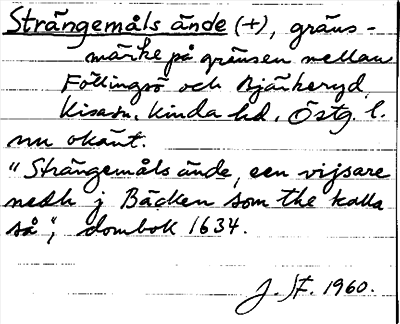 Strängemåls ände (+), gräns-
märke på gränsen mellan
Föllingsö och Bjärkeryd,
Kisa sn, Kinda hd, Östg. l.
nu okänt.
"Strängemåls ände, een vijsare
nedh j Bäcken som the kalla
så", dombok 1634.
J. H. 1960.